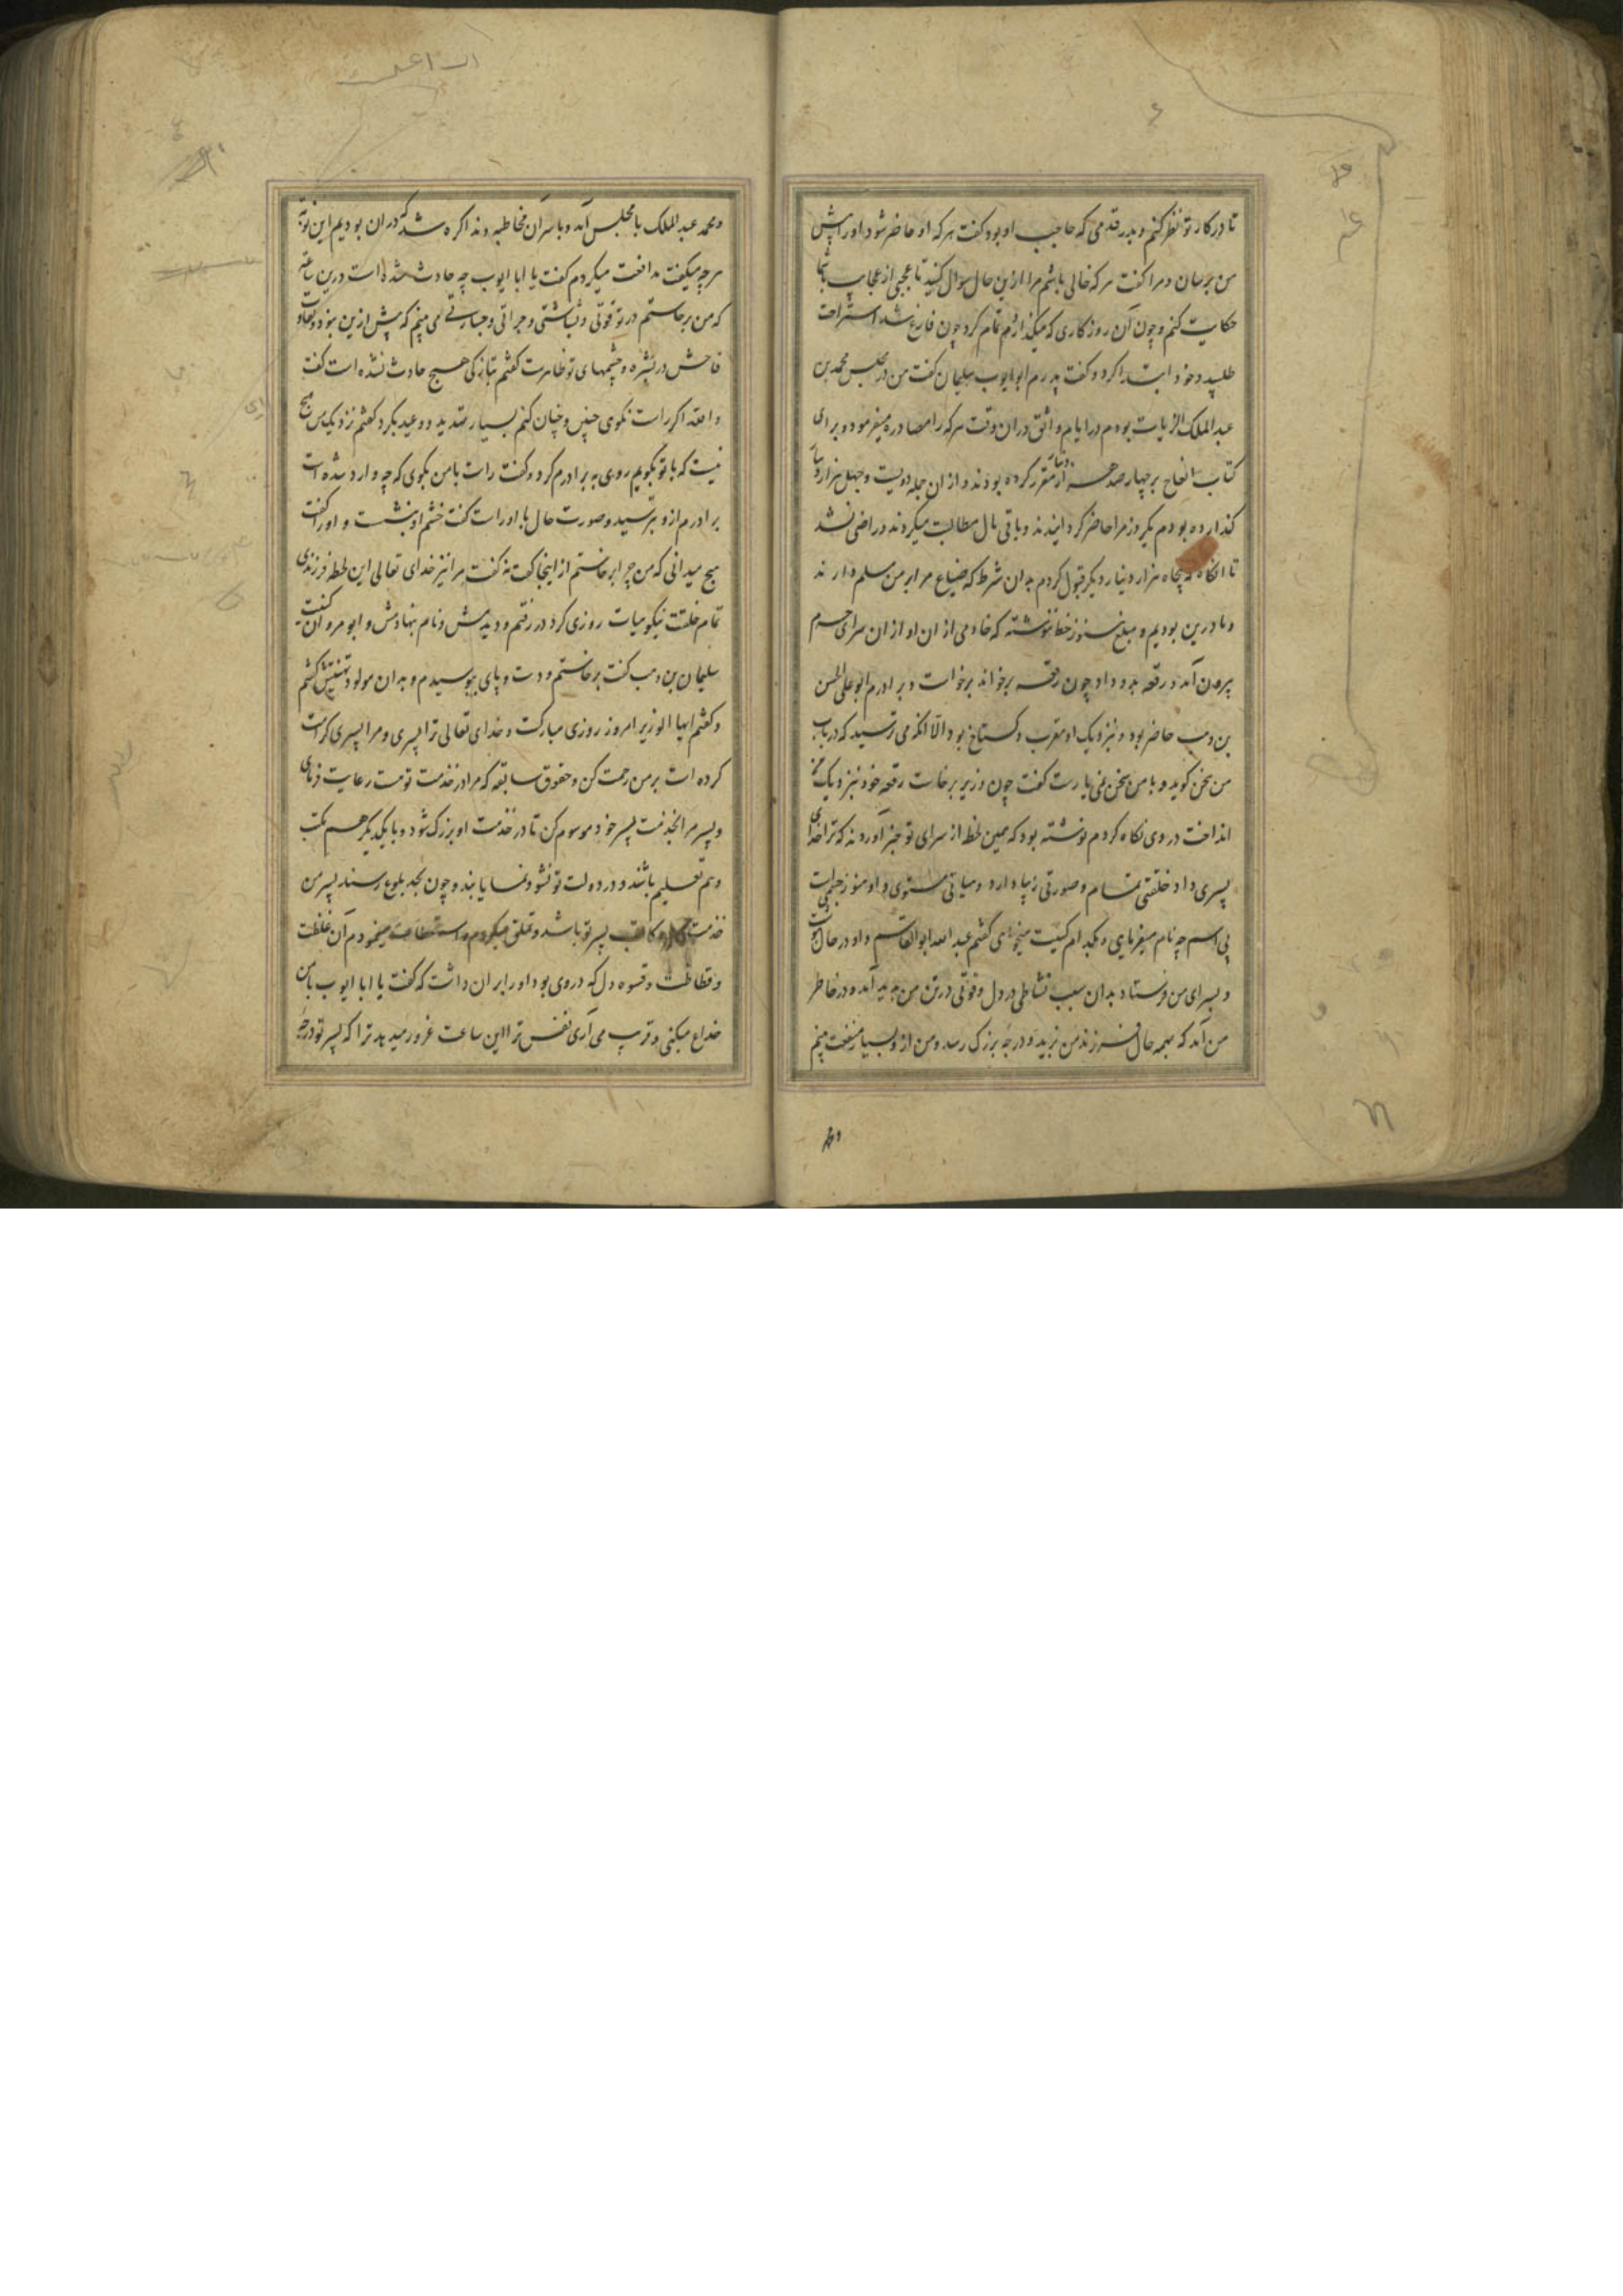 تا در کار تو نظر کنم و بدر قدمی که حاجب او بود گفت هر که او حاضر شود او را پیش
من برسان و مرا گفت هر که خالی باشم مرا ازین حال سوال کنید تا عجبی از عجایب باشما
حکایت کنم و چون آن روز کاری که میکذاردم تمام کرد چون فارغ شد استراحت
طلبید و خود ابتدا کرد و گفت پدرم ابو ایوب سلیمان گفت من در مجلس محمد بن
عبد الملک الزیات بودم در ایام واثق در ان وقت هر که را مصادره میفرمود و برای
کتاب ایتاخ بر چهار صد هزار دینار مقرر کرده بودند و از ان جمله دویست و چهل هزار دینار
کذارده بودم یکروز مرا حاضر کردانیدند و باقی مال مطالبت میکردند و راضی نشد
تا انکاه که پنجاه هزار دینار دیکر قبول کردم بدان شرط که ضیاع مرا بر من مسلم دارند
و ما درین بودیم و مبلغ هنوز خط ننوشته که خادمی از ان او از ان سرای حرم
بیرون آمد و رقعه بدو داد چون رقعه برخواند برخواست و برادرم ابو علی الحسن
بن وهب حاضر بود و بنزدیک او مقرب و کستاخ بود الا انکه می ترسید که در باب
من سخن کوید و با من سخن نمی یارست گفت چون وزیر برخاست رقعه خود بنزدیک من
انداخت در وی نکاه کردم نوشته بود که همین لحظه از سرای تو خبر آوردند که ترا خدای
پسری داد خلقتی تمام و صورتی زیبا دارد و هیاتی مستوی و او هنوز جسمی است
بی اسم چه نام میفرمایی و بکدام کنیت میخوانی گفتم عبد الله ابو القاسم و او در حال نوشت
و بسرای من فرستاد بدان سبب نشاطی در دل و قوتی در تن من پدید آمد و در خاطر
من آمد که بهمه حال فرزند من بزید و درجه بزرک رسد و من از و بسیار منفعت بینم
و محمد عبد الملک با مجلس آمد و با سر آن مخاطبه و مذاکره شد که در ان بودیم این نوبه
هرچه میگفت مدافعت میکردم گفت یا ابا ایوب چه حادث شده است درین ساعه
که من برخاستم در تو قوتی و بشاشتی و جراتی و جسارتی می بینم که پیش ازین نبود و تفاوت
فاحش در بشره و چشمهای تو ظاهرست گفتم بتازکی هیچ حادث نشده است گفت
والله اکر راست نکوی چنین و چنان کنم بسیار تهدید و وعید بکرد گفتم نزدیک من هیچ
نیست که با تو بکویم روی به برادرم کرد و گفت راست با من بکوی که چه وارد شده است
برادرم ازو بترسید و صورت حال با او راست گفت خشم او بنشست و او را گفت
هیچ میدانی که من چرا برخاستم از اینجا گفت نه گفت مرا نیز خدای تعالی این لحظه فرزندی
تمام خلقت نیکو هیات روزی کرد در رفتم و دیدمش و نام بنهادمش و ابو مروان کنیت
سلیمان بن وهب گفت برخاستم و دست و پای ببوسیدم و بدان مولود تهنیتش گفتم
و گفتم ایها الوزیر امروز روزی مبارکست و خدای تعالی ترا پسری و مرا پسری کرامت
کرده است بر من رحمت کن و حقوق سابقه که مرا در خدمت تومست رعایت فرمای
و پسر مرا بخدمت پسر خود موسوم کن تا در خدمت او بزرک شود و با یکدیکر هم مکتب
و هم تعلیم باشند و در دولت تو نشو و نما یابند و چون بحد بلوغ رسند پسر من
خدمت کاتب پسر تو باشد و تملق میکردم و استعطاف مینمودم آن غلظت
و فظاظت و قسوه دل که در وی بود او را بر ان داشت که گفت یا ابا ایوب با من
خداع میکنی و فریب می آری نفس ترا این ساعت غرور میدهد ترا که پسر تو درجه